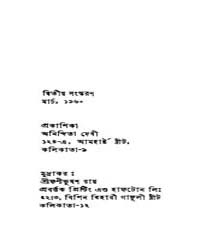 দ্বিতীয় সংস্করণ
মার্চ, ১৯৬০
প্রকাশিকা
অনিন্দিতা দেবী
১২৪-এ, আমহার্স্ট ষ্ট্রীট,
কলিকাতা-৯
মুদ্রাকর :
শ্রীফণীভূষণ রায়
প্রবর্তক প্রিন্টিং এণ্ড হাফটোন লিঃ
৫২।৩, বিপিন বিহারী গাঙ্গুলী ষ্ট্রীট
কলিকাতা-১২